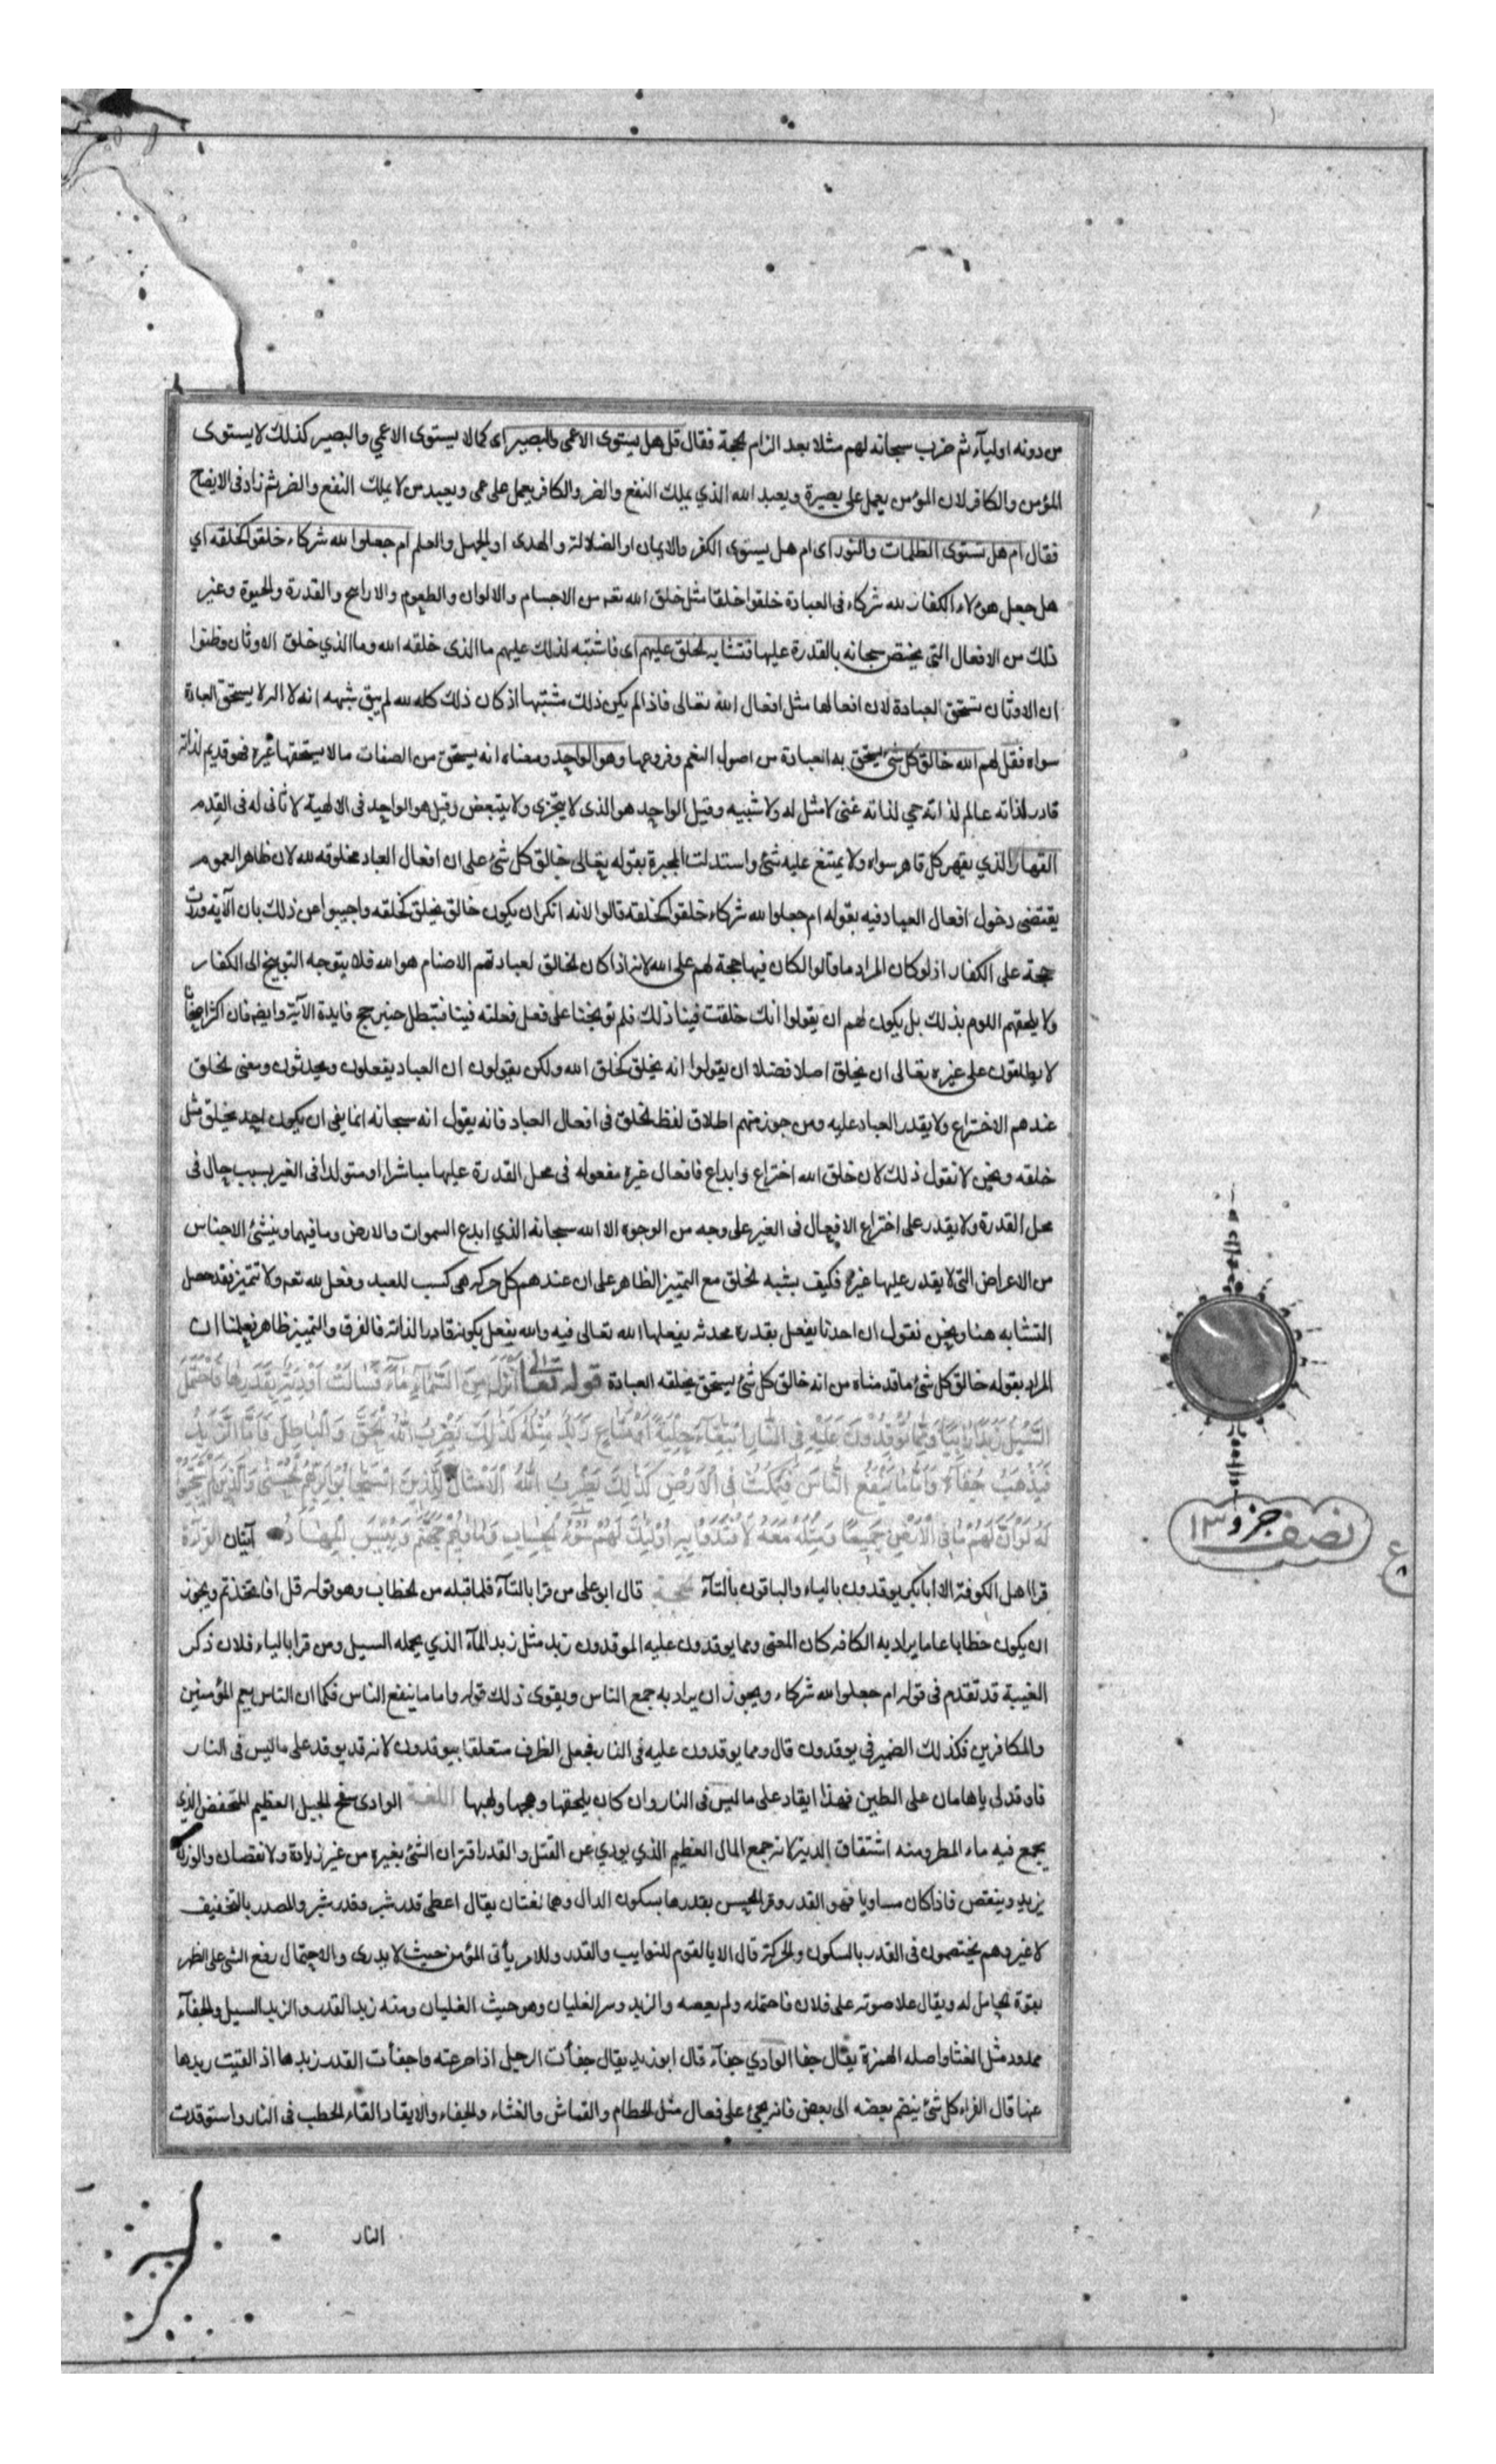 من دونه اوليآء ثم ضرب سبحانه لهم مثلا بعد الزام الحجة فقال قل هل يستوى الاعمى والبصير اى كما لا يستوى الاعمى والبصير كذلك لا يستوى
المؤمن والكافر لان المؤمن يعمل على بصيرة ويعبد الله الذي يملك النفع والضر والكافر يعمل على عمى ويعبد من لا يملك النفع والضر ثم زاد فى الايضاح
فقال ام هل تستوى الظلمات والنور اى ام هل يستوى الكفر والايمان او الضلالة والهدى او الجهل والعلم ام جعلوا لله شركاء خلقوا كخلقه اي
هل جعل هؤلاء الكفار لله شركاء فى العبادة خلقوا خلقا مثل خلق الله تعه من الاجسام والالوان والطعوم والاراييح والقدرة والحيوة وغير
ذلك من الافعال التي يختص سبحانه بالقدرة عليها فتشابه الخلق عليهم اى فاشتبه لذلك عليهم ما الذى خلقه الله وما الذي خلق الاوثان وظنوا
ان الاوثان تستحق العبادة لان افعالها مثل افعال الله تعالى فاذا لم يكن ذلك مشتبها اذ كان ذلك كله لله لم يبق شبهه انه لا اله لا يستحق العبادة
سواه فقل لهم الله خالق كل شئ يستحق به العبادة من اصول النعم وفروعها وهو الواحد ومعناه انه يستحق من الصفات ما لا يستحقها غيره فهو قديم لذاته
قادر لذاته عالم لذاته حي لذاته غنى لا مثل له ولا شبيه وقيل الواحد هو الذى لا يتجزى ولا يتبعض وقيل هو الواحد فى الالهية لا ثانى له فى القدم
القهار الذي يقهر كل قاهر سواه ولا يمتنع عليه شئ واستدلت المجبرة بقوله تعالى خالق كل شئ على ان افعال العباد مخلوقه لله لان ظاهر العموم
يقتضى دخول افعال العباد فيه بقوله ام جعلوا لله شركاء خلقوا كخلقه قالوا لانه انكر ان يكون خالق يخلق كخلقه واجيبوا عن ذلك بان الآية وردت
حجة على الكفار اذ لو كان المراد ما قالوا لكان فيها حجة لهم على الله لانه اذا كان الخالق لعبادتهم الاصنام هو الله فلا يتوجه التوبيخ الى الكفار
ولا يلحقهم اللوم بذلك بل يكون لهم ان يقولوا انك خلقت فينا ذلك فلم توبخنا على فعل فعلته فينا فتبطل حينئذ فايدة الآية وايضه فان اكثر اصحابنا
لا يطلقون على غيره تعالى ان يخلق اصلا فضلا ان يقولوا انه يخلق كخلق الله ولكن يقولون ان العباد يفعلون ويحدثون ومعنى الخلق
عندهم الاختراع ولا يقدر العباد عليه ومن جوز منهم اطلاق لفظ الخلق فى افعال العباد فانه يقول انه سبحانه انما ينفى ان يكون احد يخلق مثل
خلقه ونحن لا نقول ذلك لان خلق الله اختراع وابداع وافعال غيره مفعوله فى محل القدرة عليها مباشرا او متولدا فى الغير بسبب حال فى
محل القدرة ولا يقدر على اختراع الافعال فى الغير على وجه من الوجوه الا الله سبحانه الذي ابدع السموات والارض وما فيهما وينشئ الاجناس
من الاعراض التى لا يقدر عليها غيره فكيف يشبه الخلق مع التمييز الظاهر على ان عندهم كل حركه هى كسب للعبد وفعل لله تعه ولا تتميز فقد حصل
التشابه هنا ونحن نقول ان احدنا يفعل بقدرة محدثه يفعلها الله تعالى فيه والله يفعل بكونه قادر الذاته فالفرق والتمييز ظاهر فعلمنا ان
المراد بقوله خالق كل شئ ما قدمناه من انه خالق كل شئ يستحق بخلقه العبادة قوله تعالى أَنْزَلَ مِنَ السَّمَآءِ مَآءً فَسَالَتْ أَوْدِيَةٌ بِقَدَرِهَا فَاحْتَمَلَ
السَّيْلُ زَبَدًا رَابِيًا وَمِمَّا تُوقِدُونَ عَلَيْهِ فِى النَّارِ ابْتِغَآءَ حِلْيَةٍ أَوْ مَتَاعٍ زَبَدٌ مِثْلُهُ كَذَلِكَ يَضْرِبُ اللَّهُ الْحَقَّ وَالْبَاطِلَ فَأَمَّا الزَّبَدُ
فَيَذْهَبُ جُفَآءً وَأَمَّا مَا يَنْفَعُ النَّاسَ فَيَمْكُثُ فِى الْأَرْضِ كَذَلِكَ يَضْرِبُ اللَّهُ الْأَمْثَالَ لِلَّذِينَ اسْتَجَابُوا لِرَبِّهِمُ الْحُسْنَى وَالَّذِينَ لَمْ يَسْتَجِيبُوا
لَهُ لَوْ أَنَّ لَهُمْ مَا فِى الْأَرْضِ جَمِيعًا وَمِثْلَهُ مَعَهُ لَافْتَدَوْا بِهِ أُولَئِكَ لَهُمْ سُوءُ الْحِسَابِ وَمَأْوَيهُمْ جَهَنَّمُ وَبِئْسَ الْمِهَادُ آيتان القراءة
قرا اهل الكوفة الا ابا بكر يوقدون بالياء والباقون بالتآء الحجة قال ابو على من قرا بالتآء فلما قبله من الخطاب وهو قوله قل افاتخذتم ويجوز
ان يكون خطابا عاما يراد به الكافه كان المعنى ومما يوقدون عليه الموقدون زبد مثل زبد المآء الذي يحمله السيل ومن قرا بالياء فلان ذكر
الغيبة قد تقدم فى قوله ام جعلوا لله شركاء ويجوز ان يراد به جمع الناس ويقوى ذلك قوله واما ما ينفع الناس فكما ان الناس يعم المؤمنين
والكافرين فكذلك الضمير فى يوقدون قال ومما يوقدون عليه فى النار فجعل الظرف متعلقا بيوقدون لانه قد يوقد على ما ليس فى النار
فاوقد لى يا هامان على الطين فهذا ايقاد على ما ليس فى النار وان كان يلحقها وهجها ولهبها اللغة الوادى سفح الجبل العظيم المنخفض الذي
يجمع فيه ماء المطر ومنه اشتقاق الدية لانه جمع المال العظيم الذي يودي عن القتل والقدر اقتران الشئ بغيره من غير زيادة ولا نقصان والوزن
يزيد وينقص فاذا كان مساويا فهو القدر وقرا الحسن بقدرها بسكون الدال وهما لغتان يقال اعطى قدر شبر وقدر شبر والمصدر بالتخفيف
لا غير وهم يختصمون فى القدر بالسكون والحركة قال الا يا لقوم للنوايب والقدر وللامر يأتى المؤ من حيث لا يدرى والاحتمال رفع الشئ على الظهر
بقوة الحامل له ويقال علا صوته على فلان فاحتمله ولم يعصه والزبد وسر الغليان وهو حيث الغليان ومنه زبد القدر والزبد السيل والجفآء
ممدود مثل الغثا واصله الهمزة يقال جفا الوادي جفآء قال ابو زيد يقال جفأت الرجل اذا صرعته واجفأت القدر زبدها اذا القيت زبدها
عنها قال الفراء كل شئ ينضم بعضه الى بعض فانه يجئ على فعال مثل الحطام والقماش والغثاء والجفاء والايقاد القاء الحطب فى النار واستوقدت
النار
نصف جزو ١٣
ع